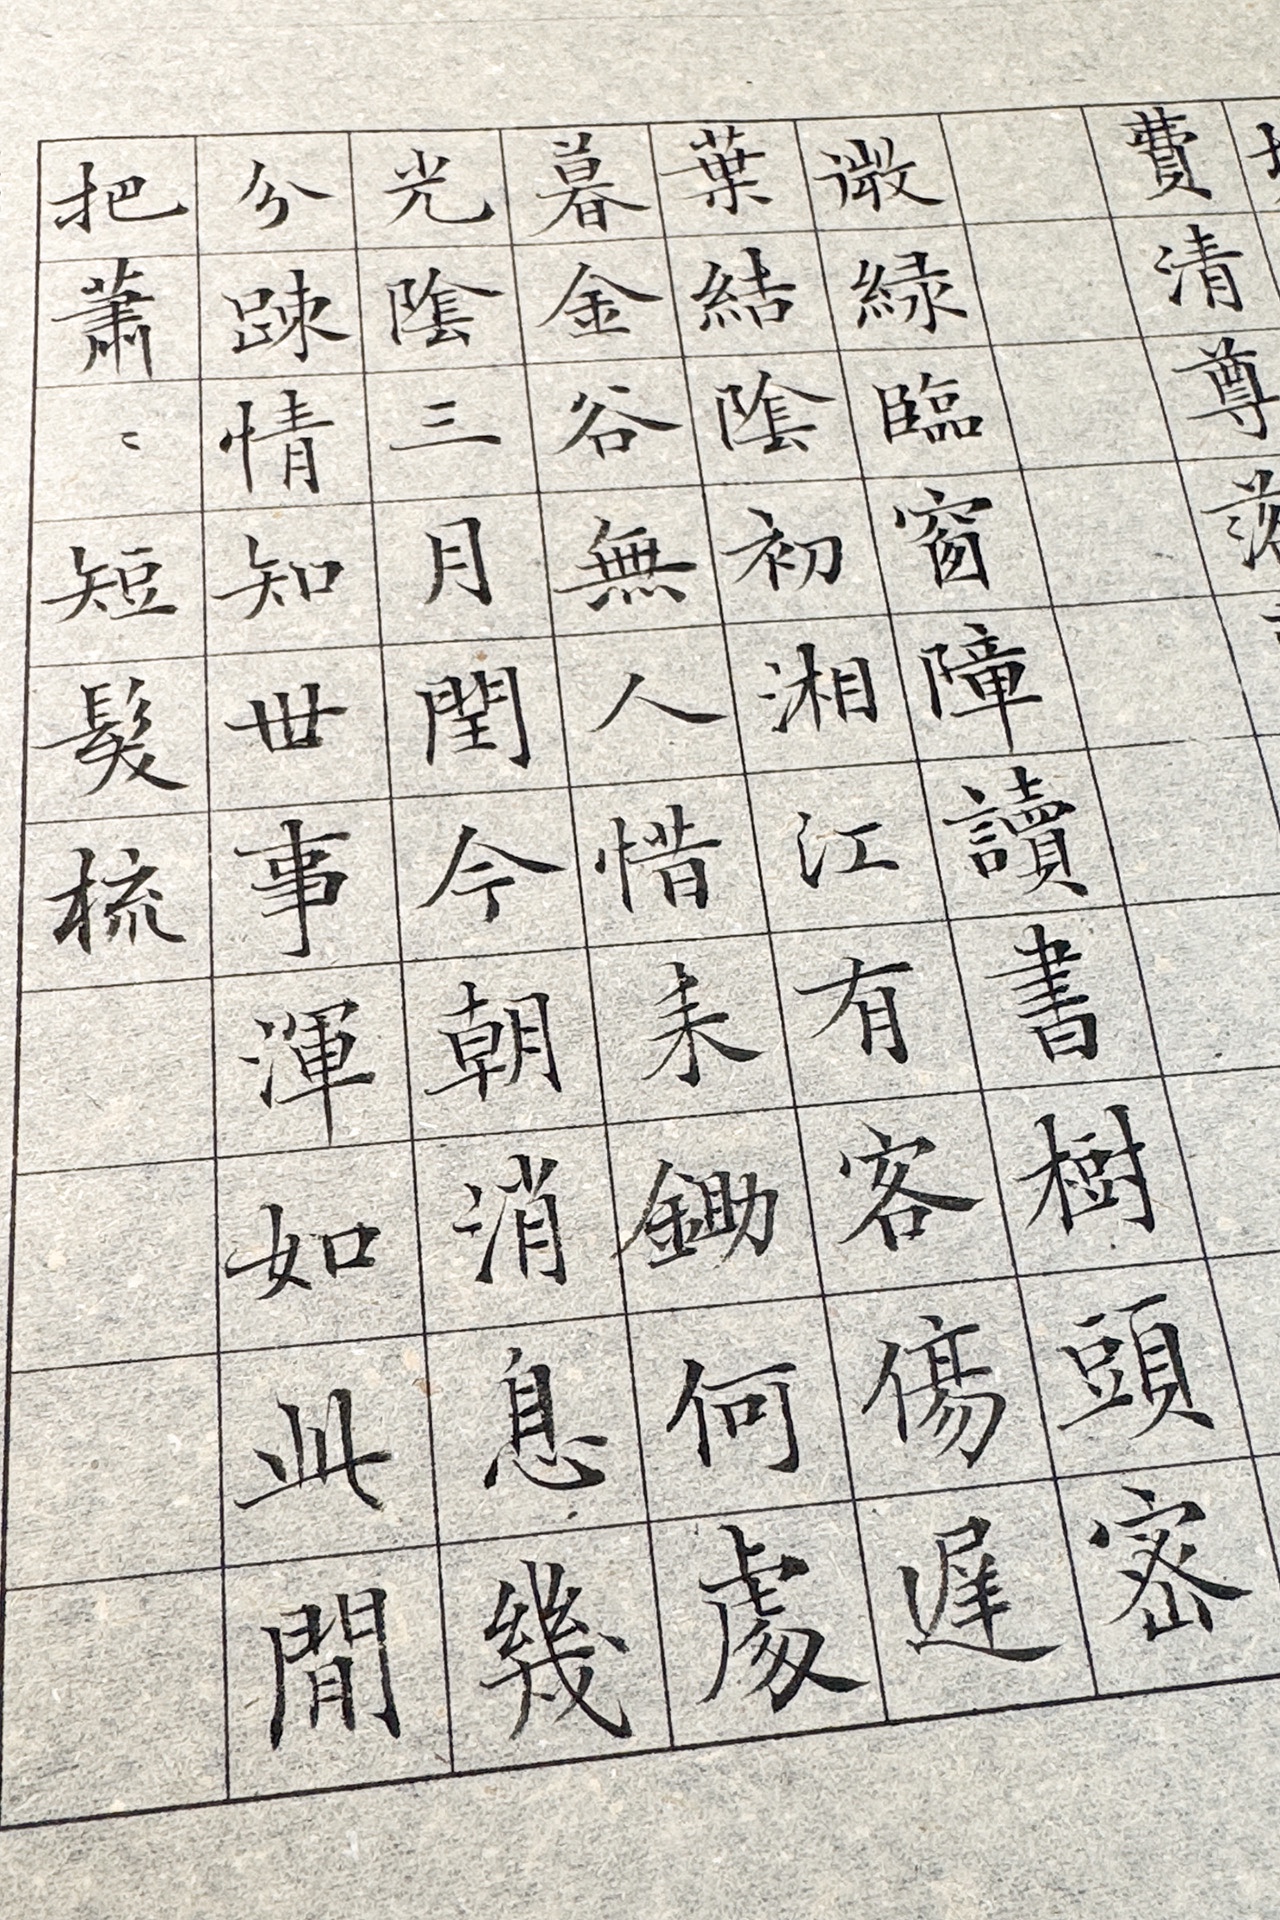 費清尊
微緑臨窗障讀書樹頭密
葉結陰初湘江有客傷遲
暮金谷無人惜耒鋤何處
光陰三月閏今朝消息幾
分踈情知世事渾如此閒
把蕭〻短髮梳